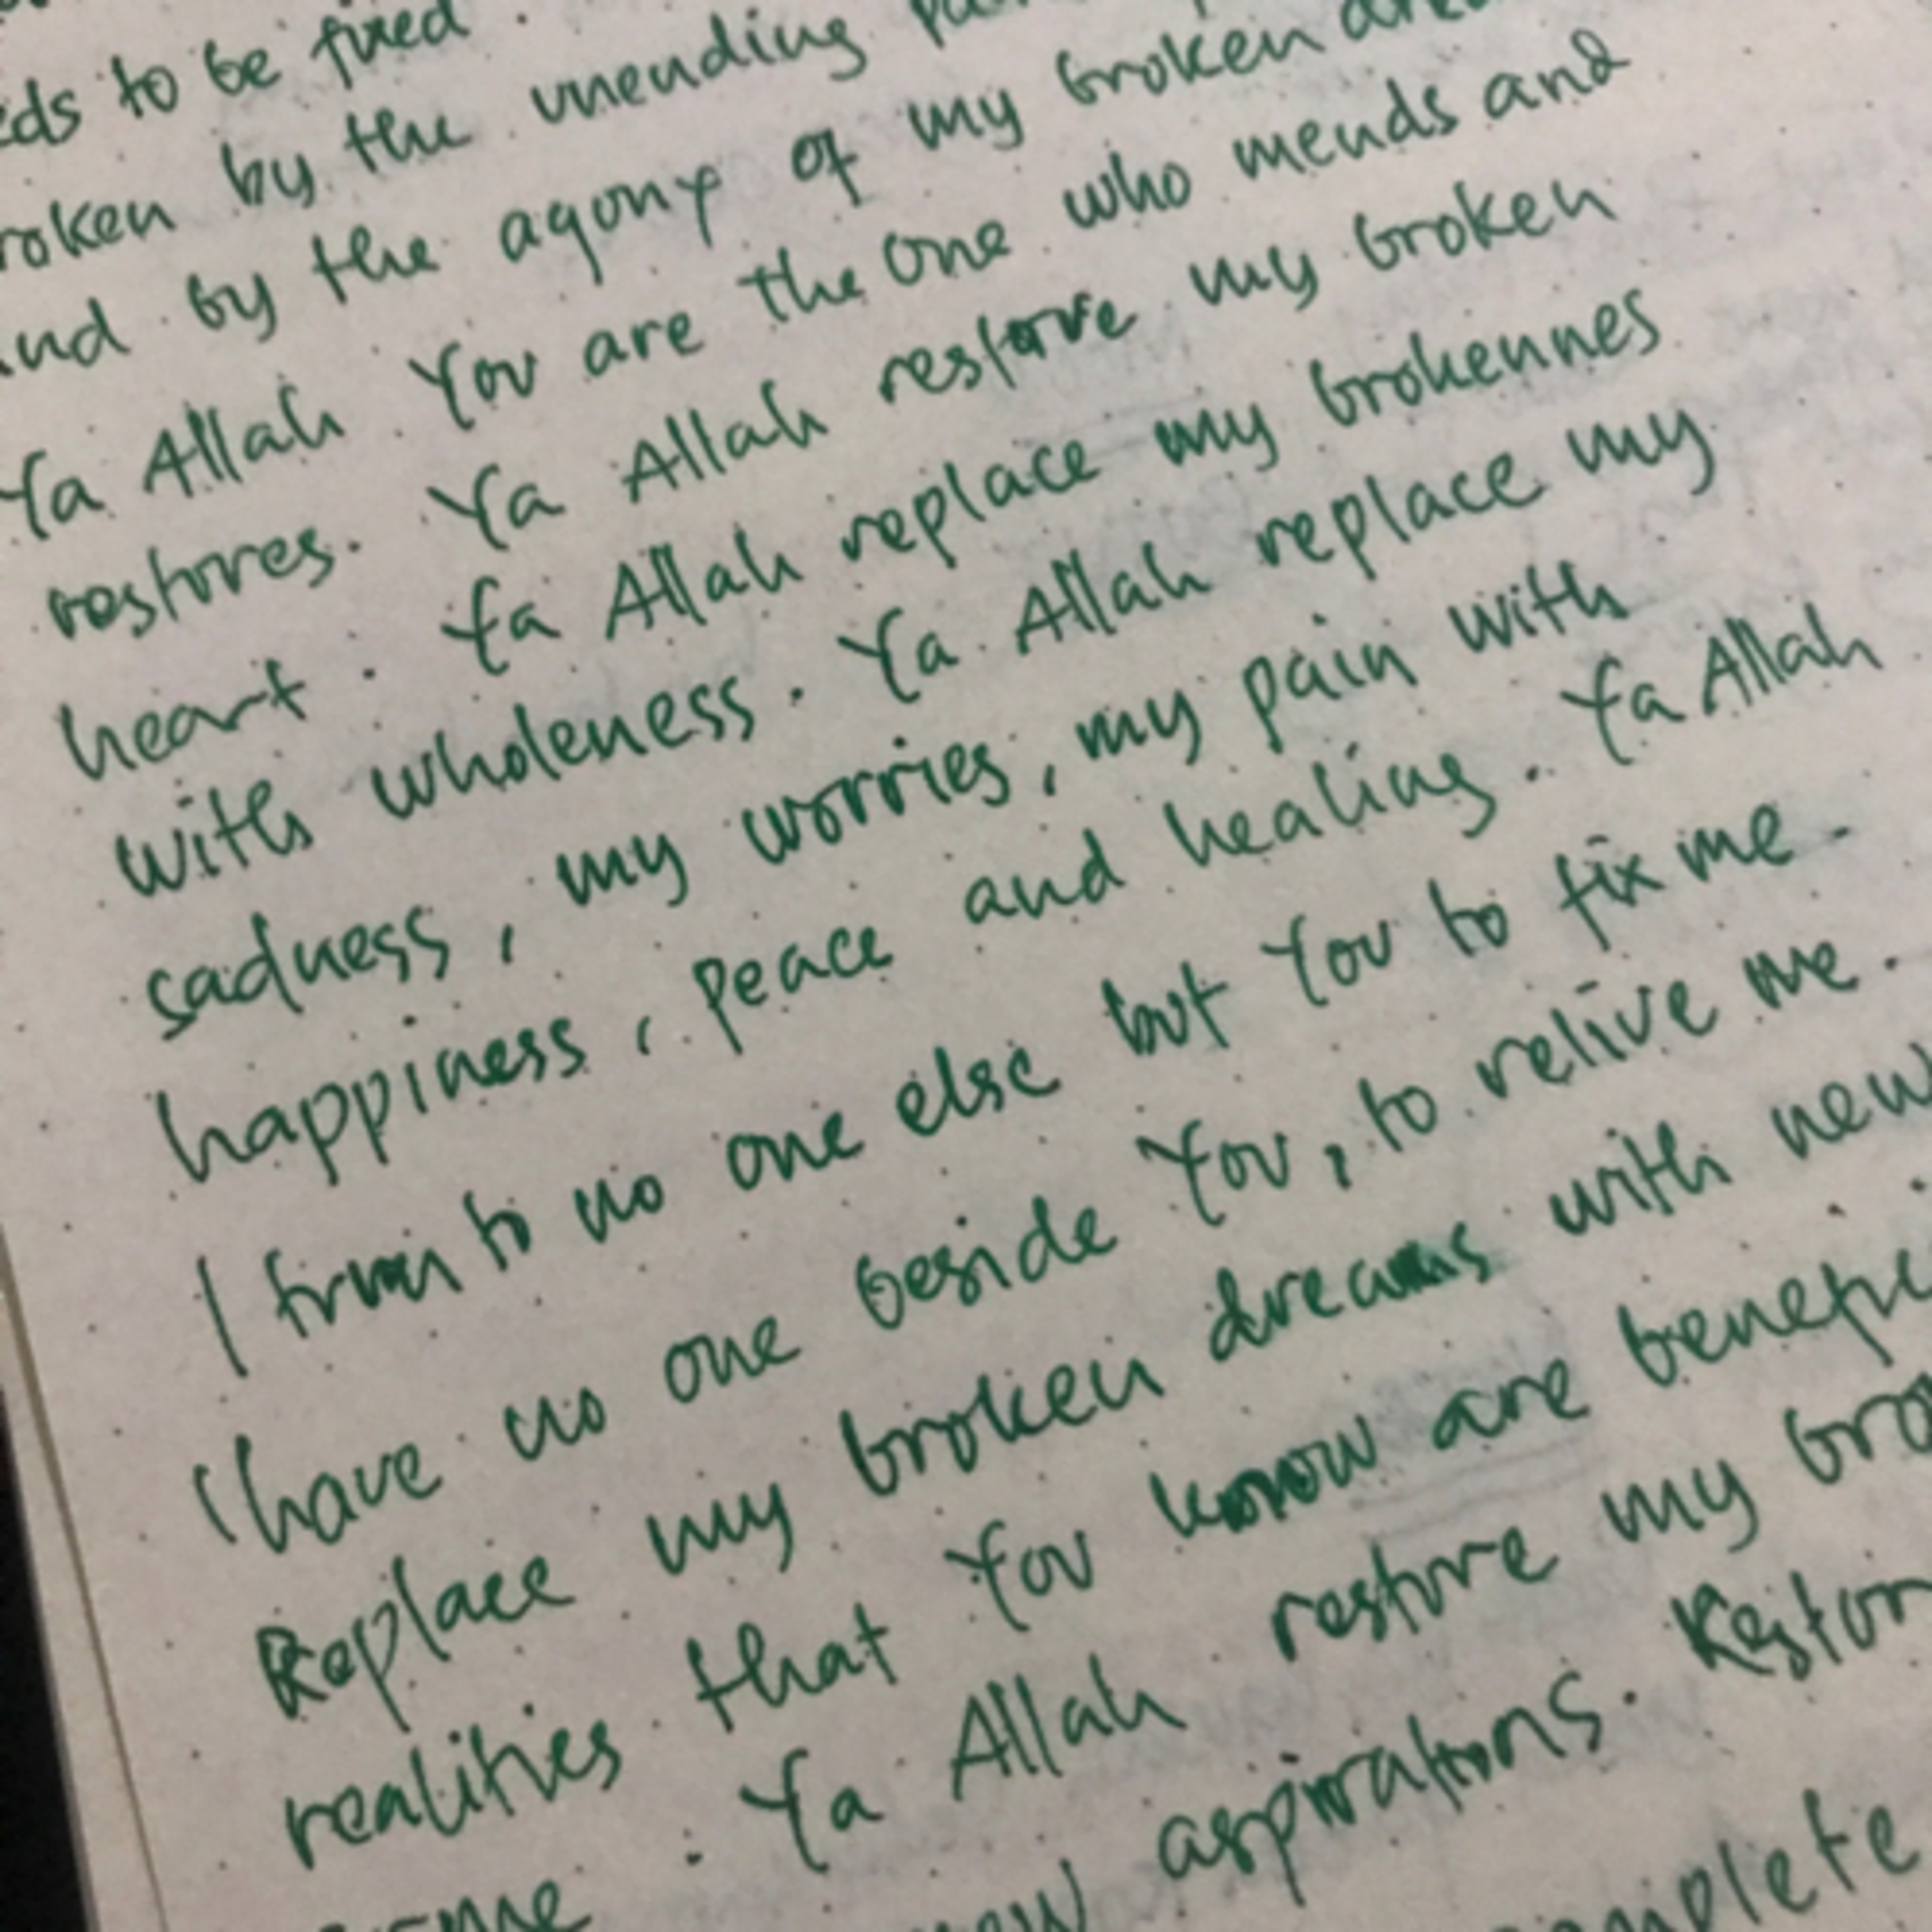 to be fixed.
by the unending
by the agony of my broken
Ya Allah You are the one who mends and
restores. Ya Allah restore my broken
heart. Ya Allah replace my brokennes
with wholeness. Ya Allah replace my
sadness, my worries, my pain with
happiness, peace and healing. Ya Allah
I to no one else but You to fix me.
I have no one beside You, to relive me.
Replace my broken dreams with new
realities that You know are
. Ya Allah restore my
aspirations.